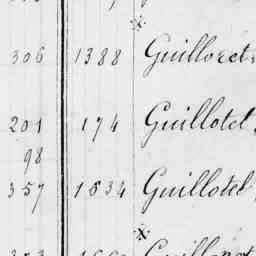 306 1388 Guilloret
201 174 Guillotel
98
357 1534 Guillotel